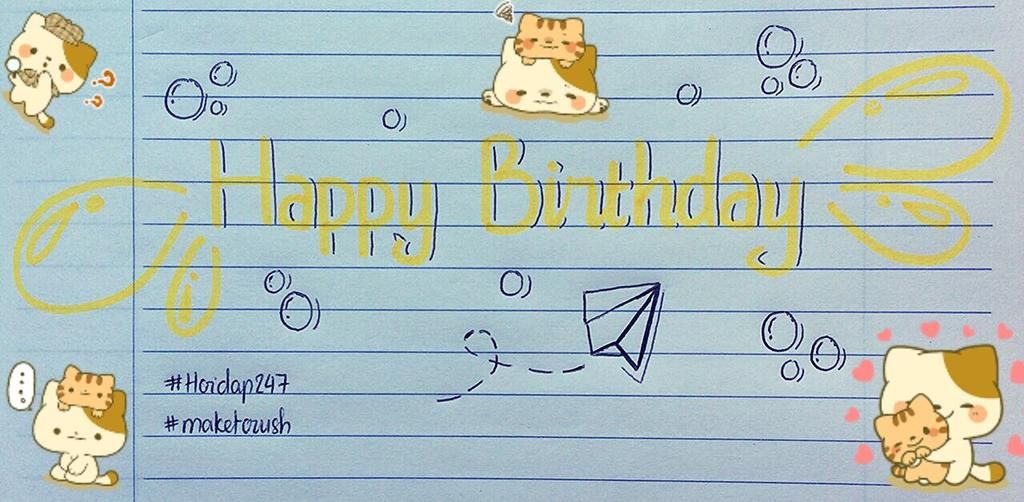 Happy Birthday
#Hoidap247
#maketcrush